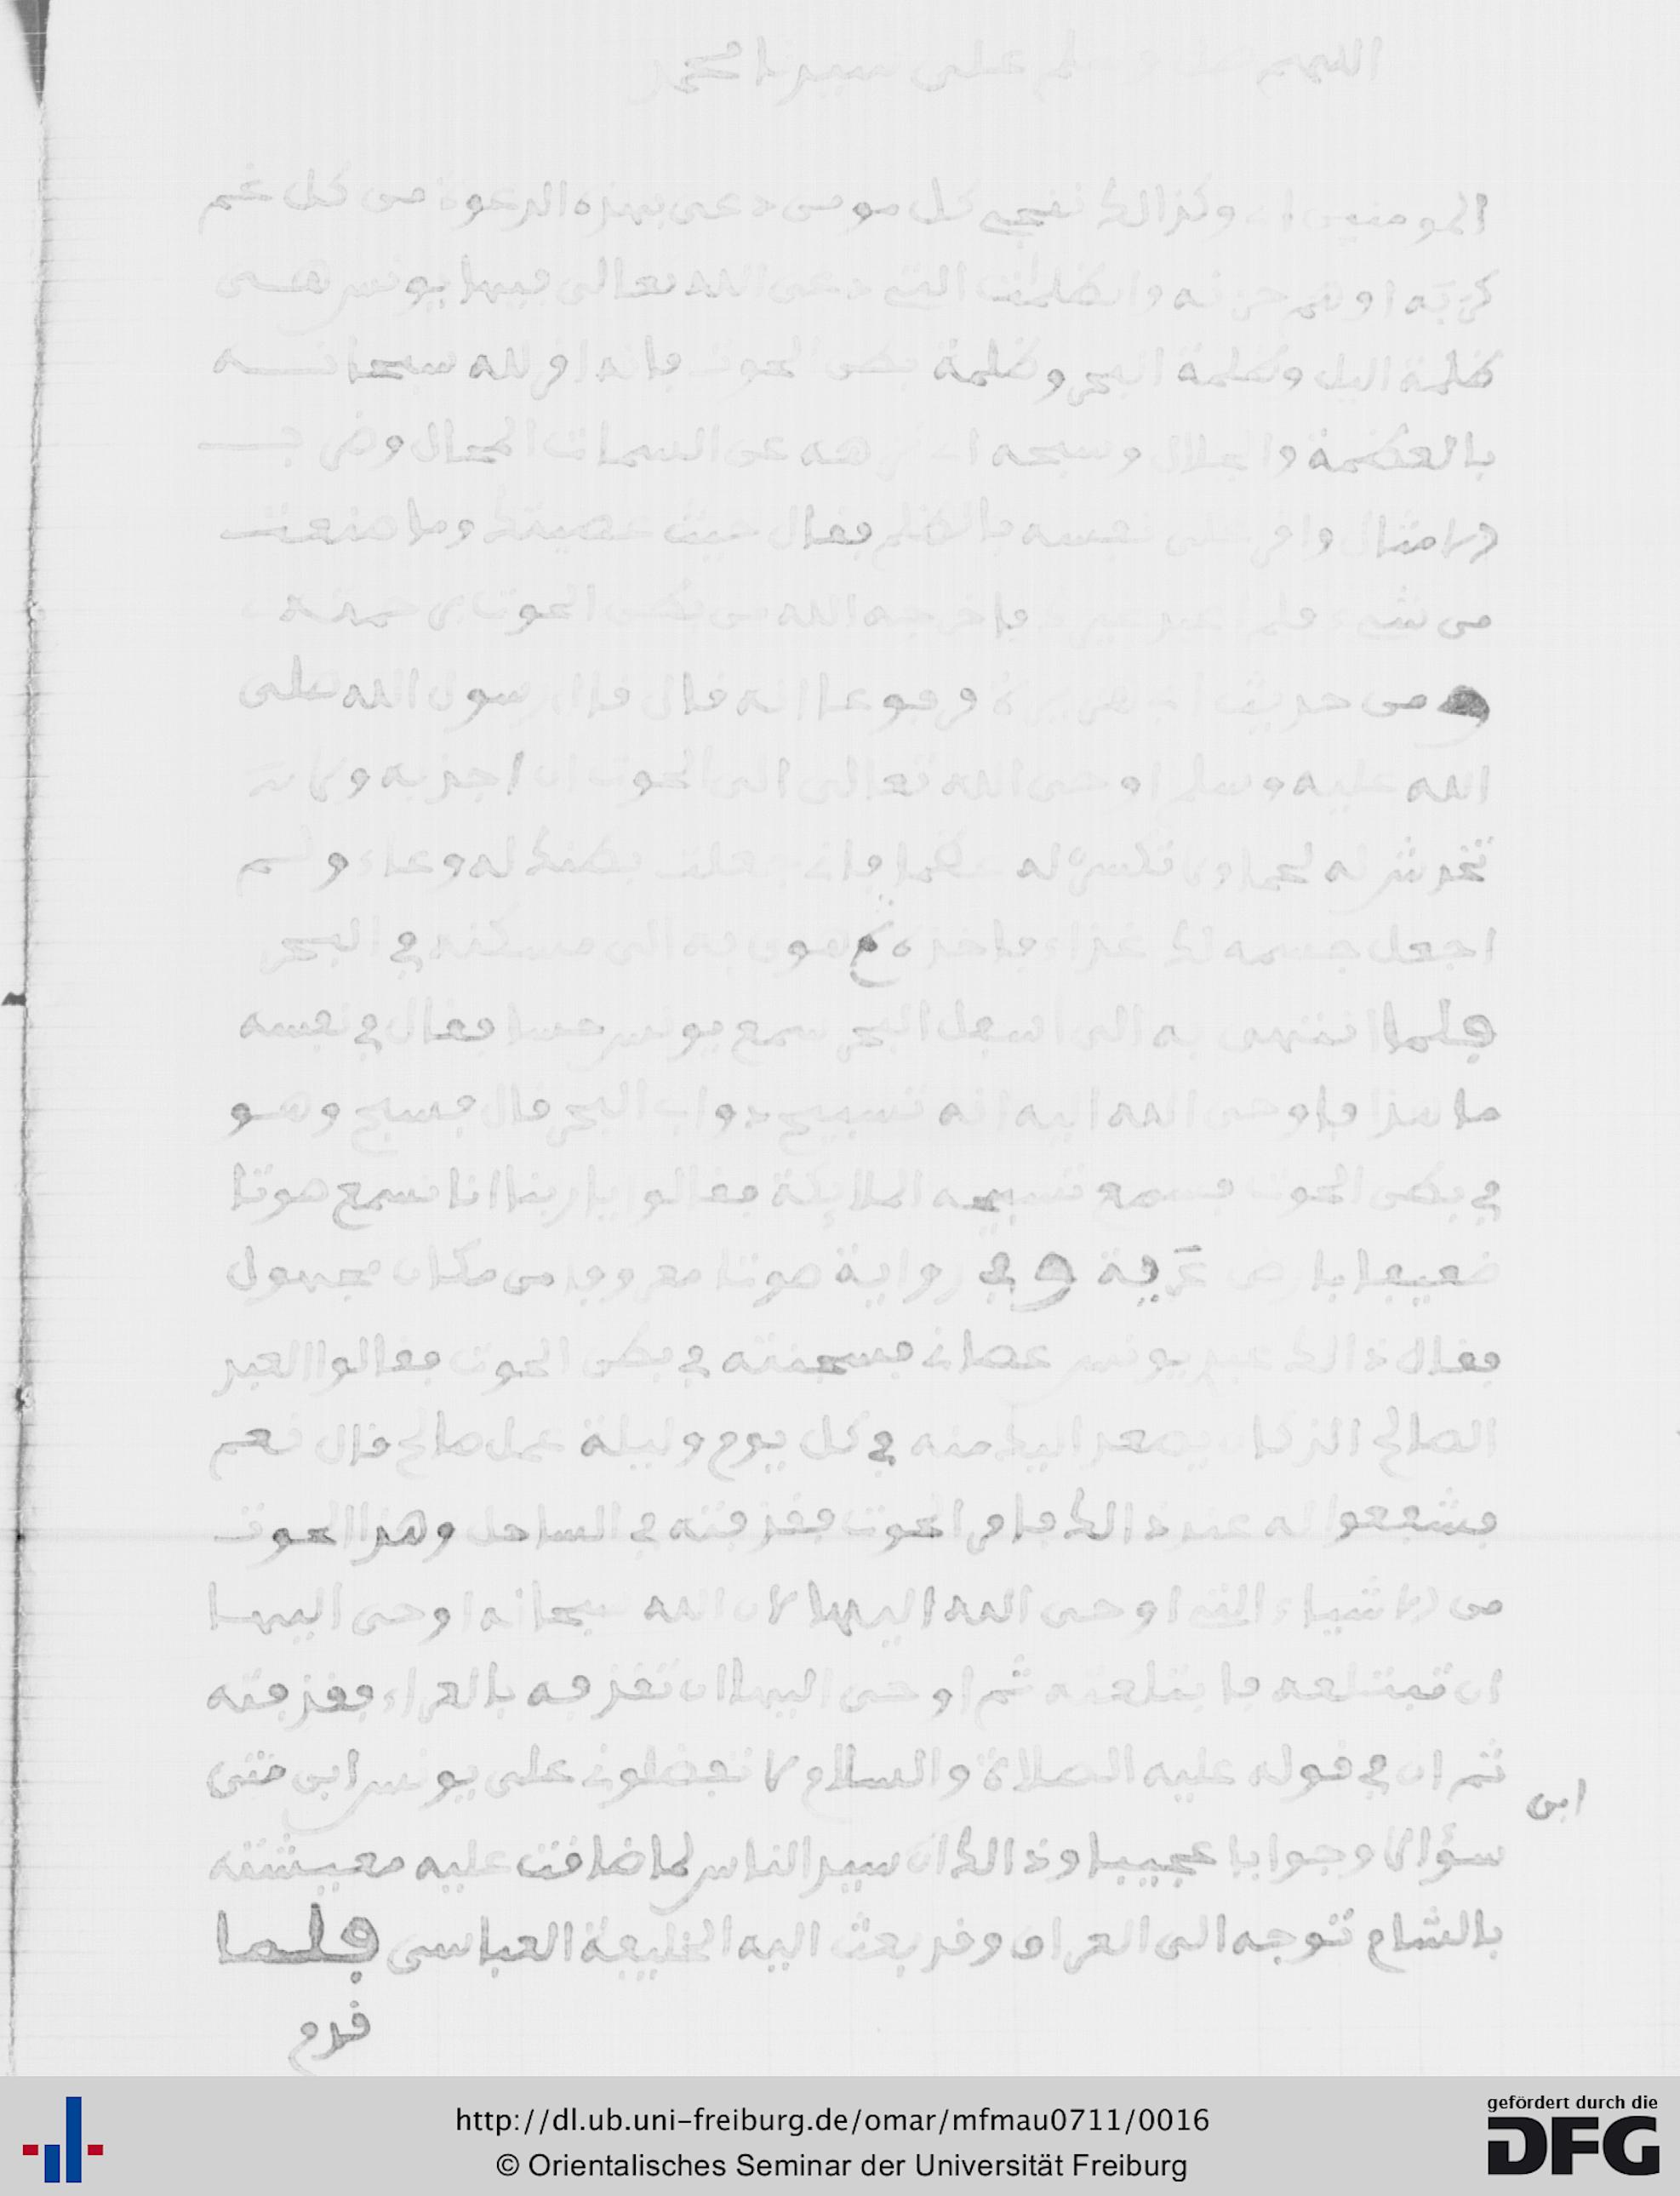 اللهم صل وسلم على سيدنا محمد
المومنين اي وكذالك ننجي كل مومن دعى بهذه الدعوة من كل غم
كربه او هم حزنه والظلمات التي دعى الله تعالى فيها يونس هي
ظلمة اليل وظلمة البحر وظلمة بطن الحوت فانه اقر لله سبحانه
بالعظمة والجلال وسبحه اي نزهه عن السمات المحال وضرب
الامثال واقر على نفسه بالظلم فقال حيث عصيتك وما صنعت
من شيء فلم اعبد غيرك فاخرجه الله من بطن الحوت برحمته
ومن حديث ابي هريرة مرفوعا انه قال قال رسول الله صلى
الله عليه وسلم اوحى الله تعالى الى الحوت ان اجذبه ولا
تخدش له لحما ولا تكسر له عظما فاني جعلت بطنك له وعاء ولم
اجعل جسمه لك غذاء فاخذه ثم هوى به الى مسكنه في البحر
فلما انتهى به الى اسفل البحر سمع يونس حسا فقال في نفسه
ما هذا فاوحى الله اليه انه تسبيح دواب البحر قال فسبح وهو
في بطن الحوت فسمع تسبيحه الملايكة فقالوا يا ربنا انا نسمع صوتا
ضعيفا بارض غريبة وفي رواية صوتا معروفا من مكان مجهول
فقال ذالك عبدي يونس عصاني فسجنته في بطن الحوت فقالوا العبد
الصالح الذي كان يصعد اليك منه في كل يوم وليلة عمل صالح قال نعم
فشفعوا له عند ذالك فامر الحوت فقذفته في الساحل وهذا الحوت
من الاشياء التي اوحى الله اليها لان الله سبحانه اوحى اليها
ان تبتلعه فابتلعته ثم اوحى اليها ان تقذفه بالعراء فقذفته
ثم ان في قوله عليه الصلاة والسلام لا تفضلوني على يونس ابن متى
ابن
سؤالا وجوابا عجيبا وذالك ان سيد الناس لما ضاقت عليه معيشته
بالشام توجه الى العراق وقد بعث اليه الخليفة العباسي فلما
قدم
http://dl.ub.uni-freiburg.de/omar/mfmau0711/0016
© Orientalisches Seminar der Universität Freiburg
gefördert durch die
DFG